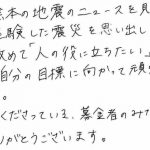 本の地震のニュースを見
験した震災を思い出し
めて「人の役に立ちたい」
自分の目標に向かって頑
くださっている、募金者のみな
りがとうございます。